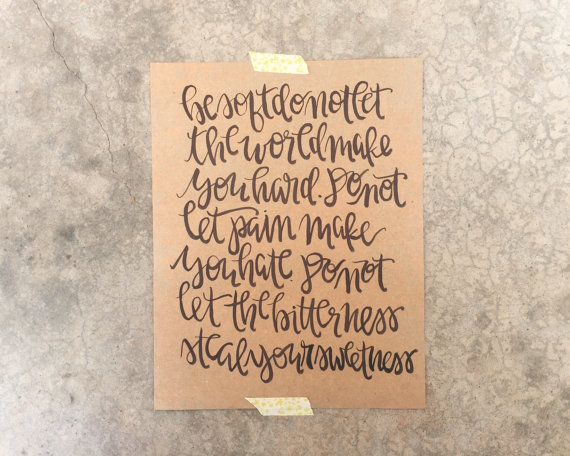 be soft do not let
the world make
you hard. Do not
let pain make
you hate Do not
let the bitterness
steal your sweetness